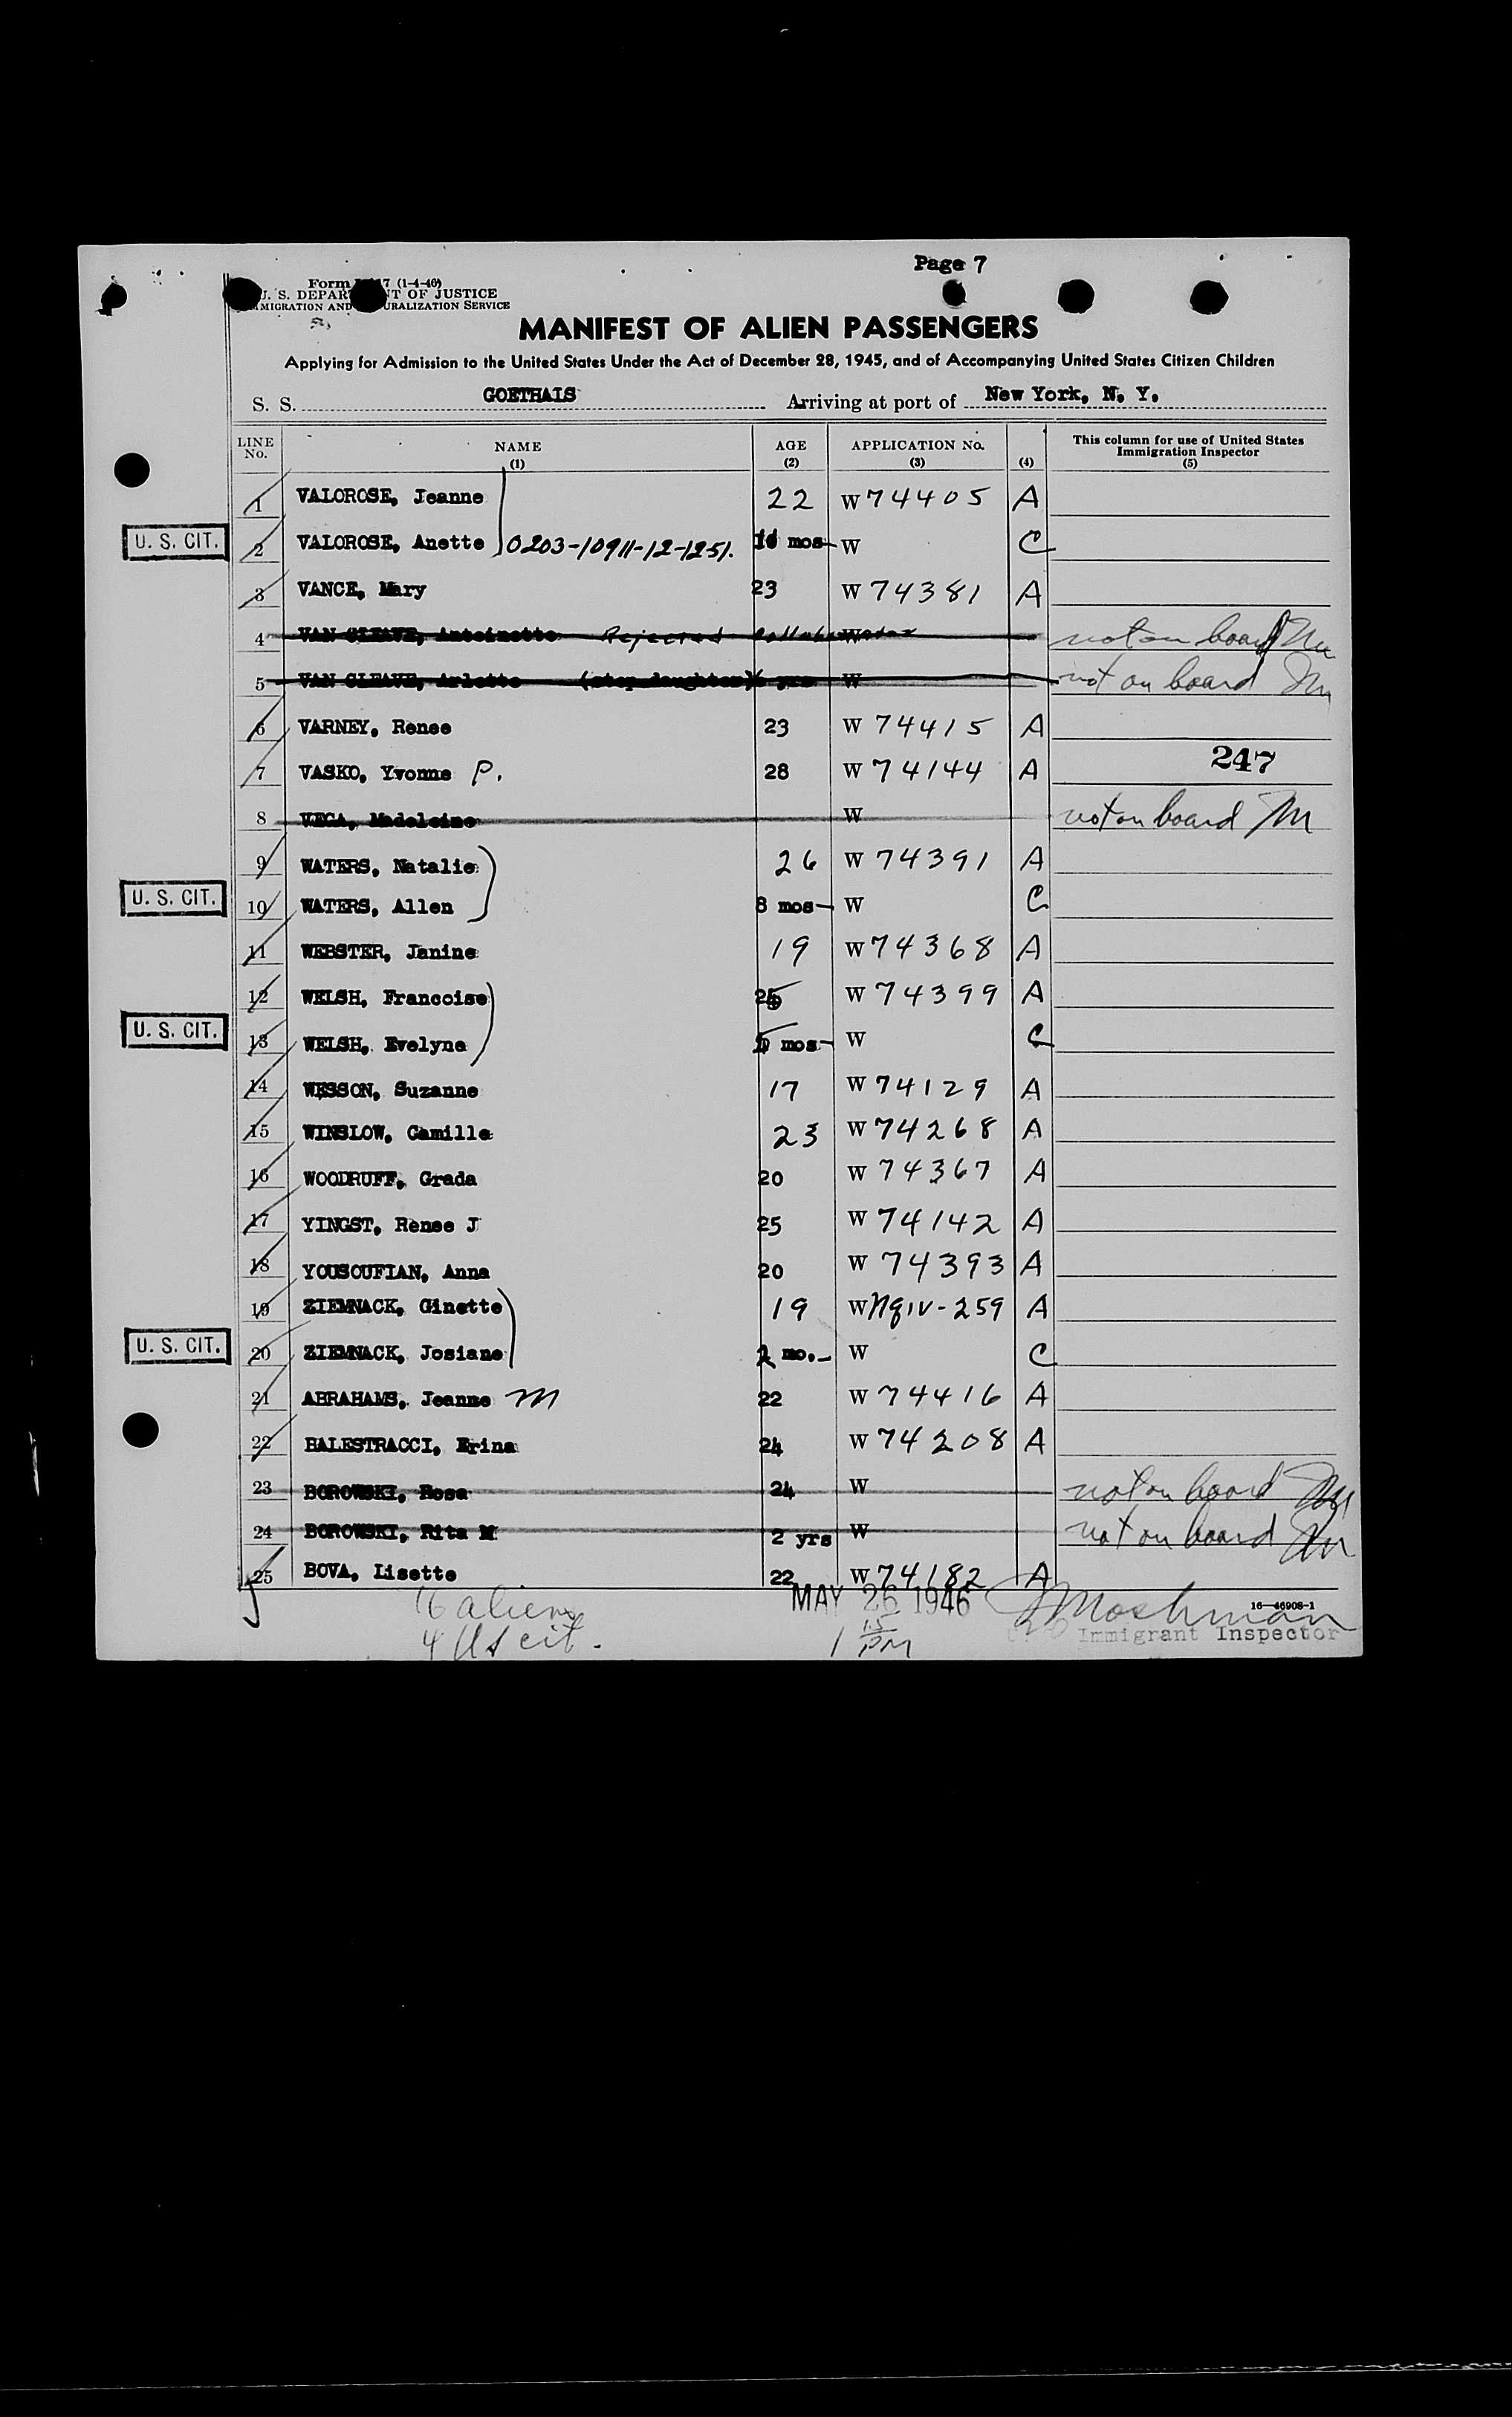 Page 7
Form 7 (1-4-46)
U. S. DEPARTMENT OF JUSTICE
IMMIGRATION AND NATURALIZATION SERVICE
MANIFEST OF ALIEN PASSENGERS
Applying for Admission to the United States Under the Act of December 28, 1945, and of Accompanying United States Citizen Children
S. S. GOETHALS Arriving at port of New York, N. Y.
LINE No. NAME (1) AGE (2) APPLICATION No. (3) (4) This column for use of United States Immigration Inspector (5)
1 VALOROSE, Jeanne 22 W 74405 A
U. S. CIT. 2 VALOROSE, Anette 0203-10911-12-1251. mos W C
3 VANCE, Mary 23 W 74381 A
4 VAN CLEAVE, Antoinette Rejected W not on board
5 VAN CLEAVE, Arlette (step daughter) yrs W not on board
6 VARNEY, Renee 23 W 74415 A
7 VASKO, Yvonne P. 28 W 74144 A 247
8 VEGA, Madeleine W not on board
9 WATERS, Natalie 26 W 74391 A
U. S. CIT. 10 WATERS, Allen 8 mos W C
11 WEBSTER, Janine 19 W 74368 A
12 WELSH, Francoise 25 W 74399 A
U. S. CIT. 13 WELSH, Evelyne 5 mos W C
14 WESSON, Suzanne 17 W 74129 A
15 WINSLOW, Camille 23 W 74268 A
16 WOODRUFF, Grada 20 W 74367 A
17 YINGST, Renee J 25 W 74142 A
18 YOUSOUFIAN, Anna 20 W 74393 A
19 ZIEMNACK, Ginette 19 W NQIV-259 A
U. S. CIT. 20 ZIEMNACK, Josiane 2 mo. W C
21 ABRAHAMS, Jeanne M 22 W 74416 A
22 BALESTRACCI, Erina 24 W 74208 A
23 BOROWSKI, Rosa 24 W not on board
24 BOROWSKI, Rita M 2 yrs W not on board
25 BOVA, Lisette 22 W 74182 A
16 aliens
4 US cit.
MAY 26 1946
1 15 PM
Moshman
16—46908-1
Immigrant Inspector